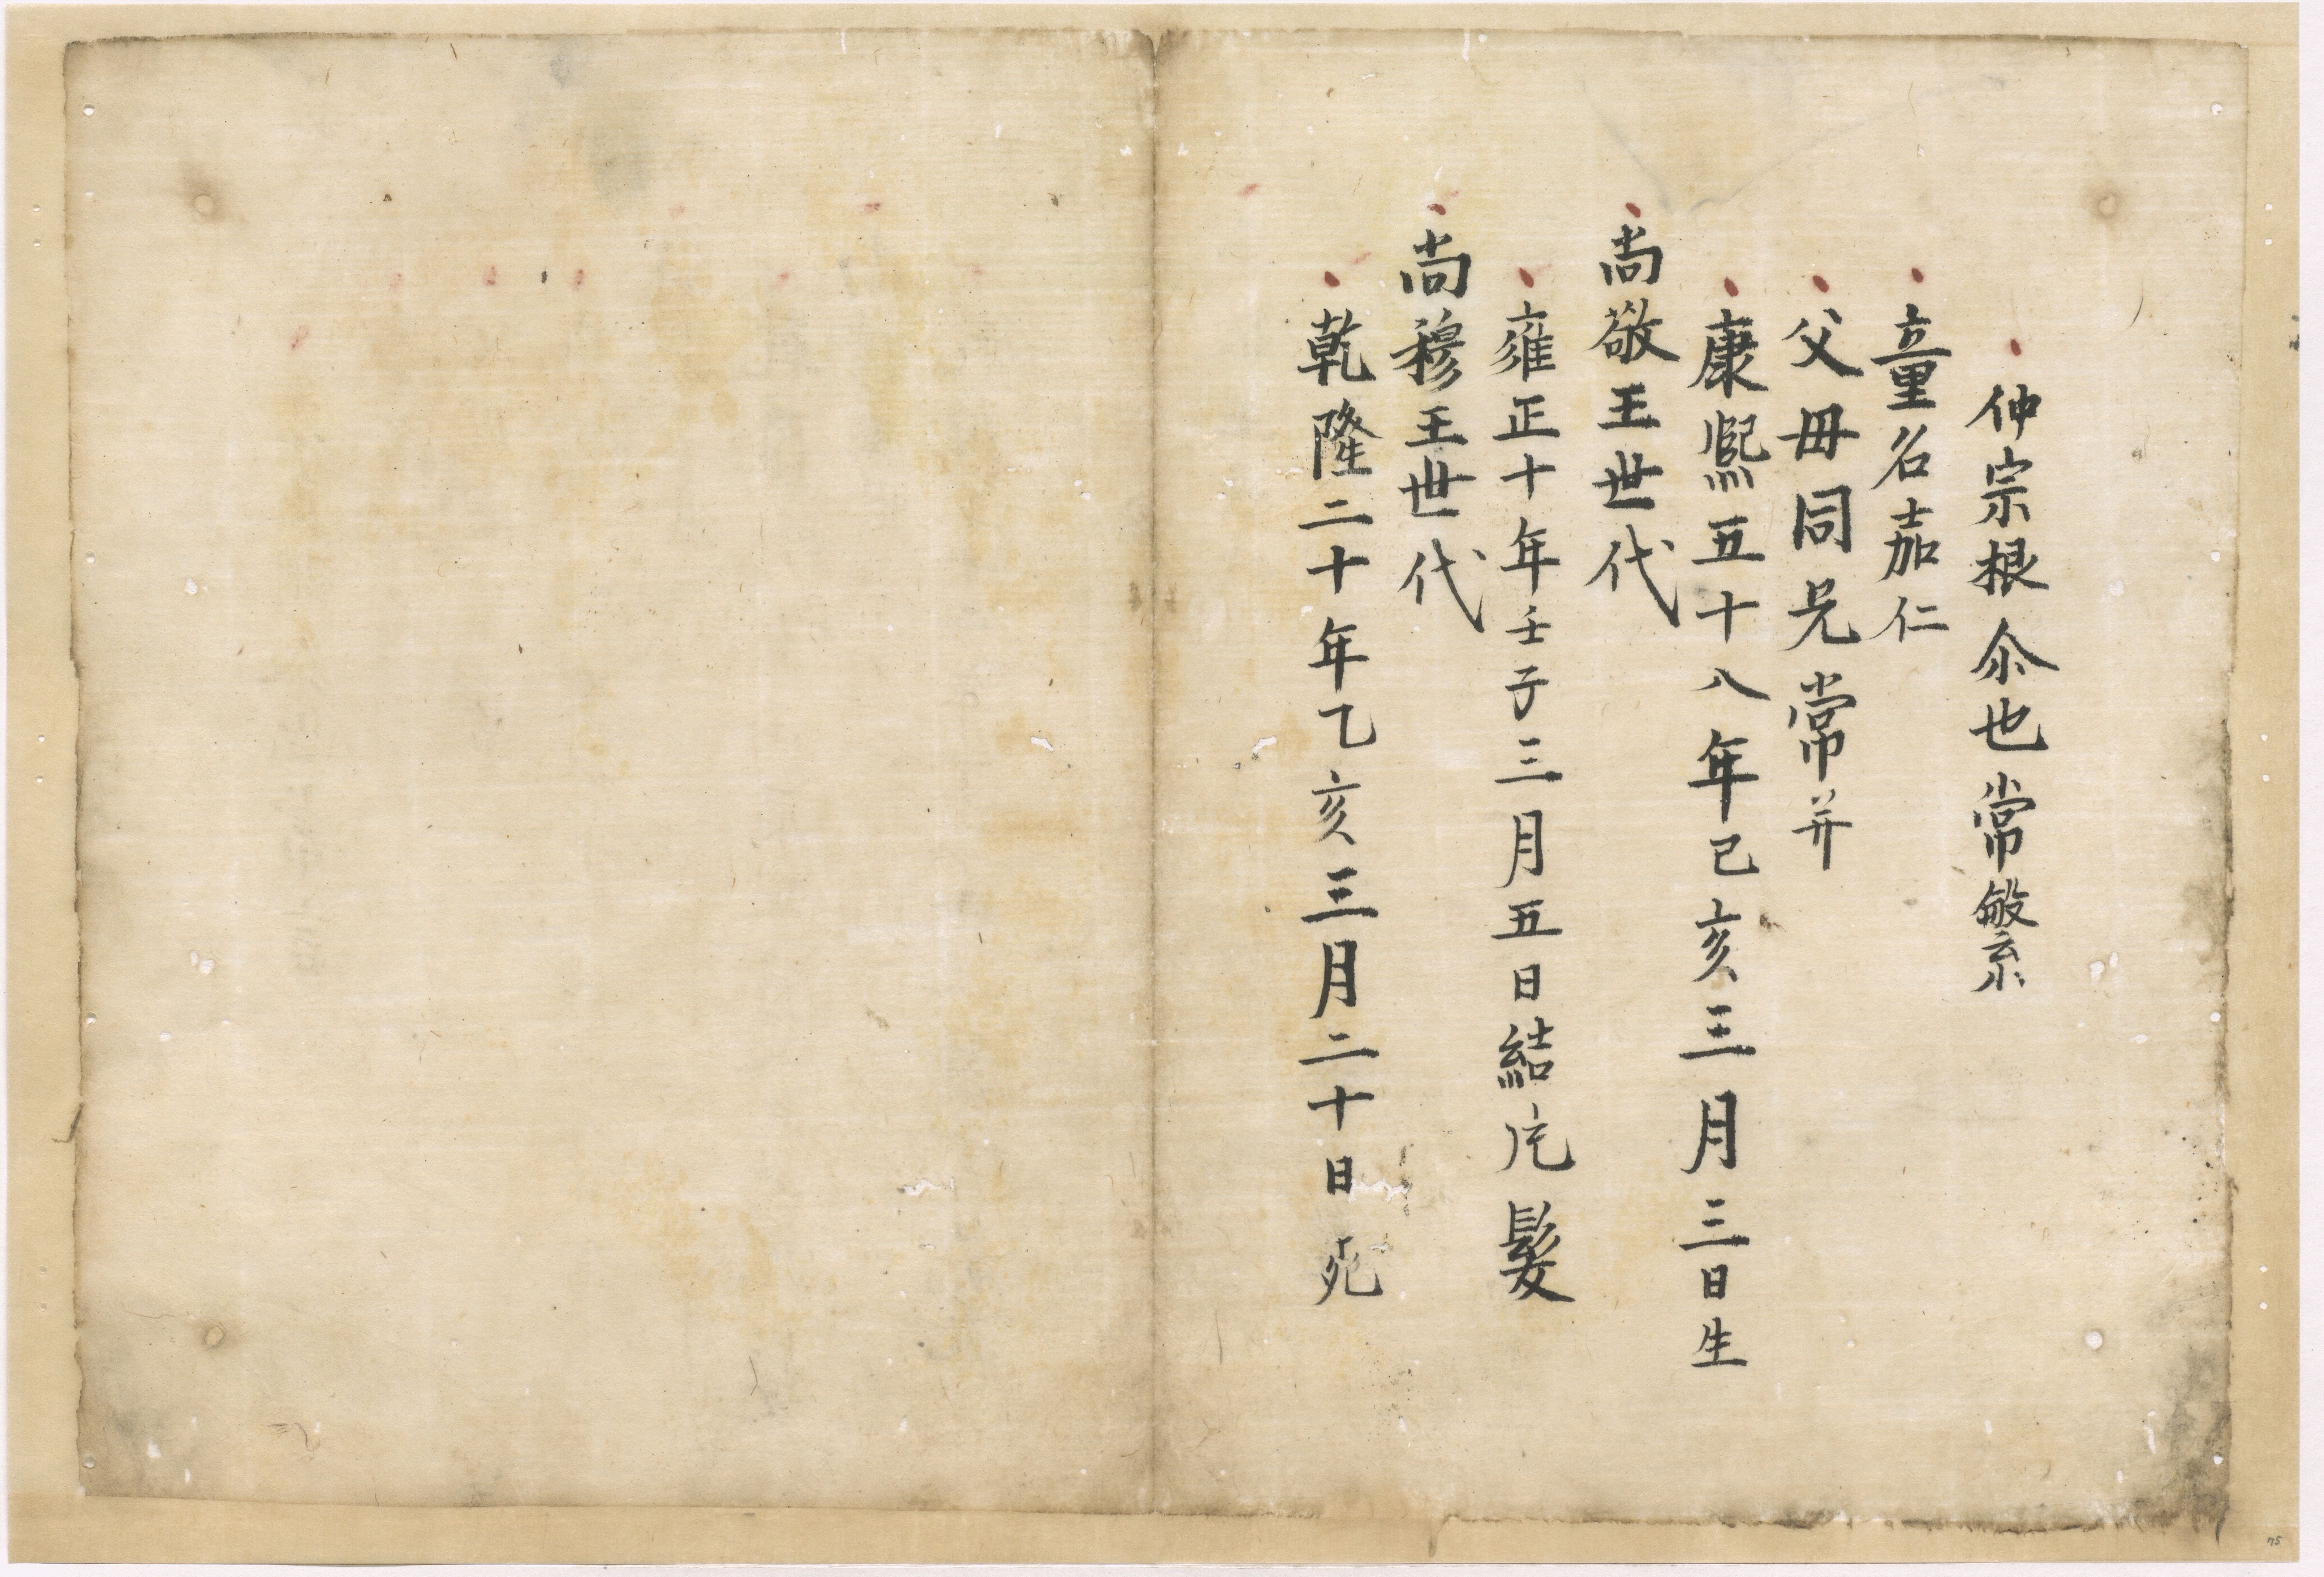 仲宗根尒也常繁
童名嘉仁
父母同兄常并
康熙五十八年己亥三月三日生
尚敬王世代
雍正十年壬子三月五日結片髪
尚穆王世代
乾隆二十年乙亥三月二十日死
75